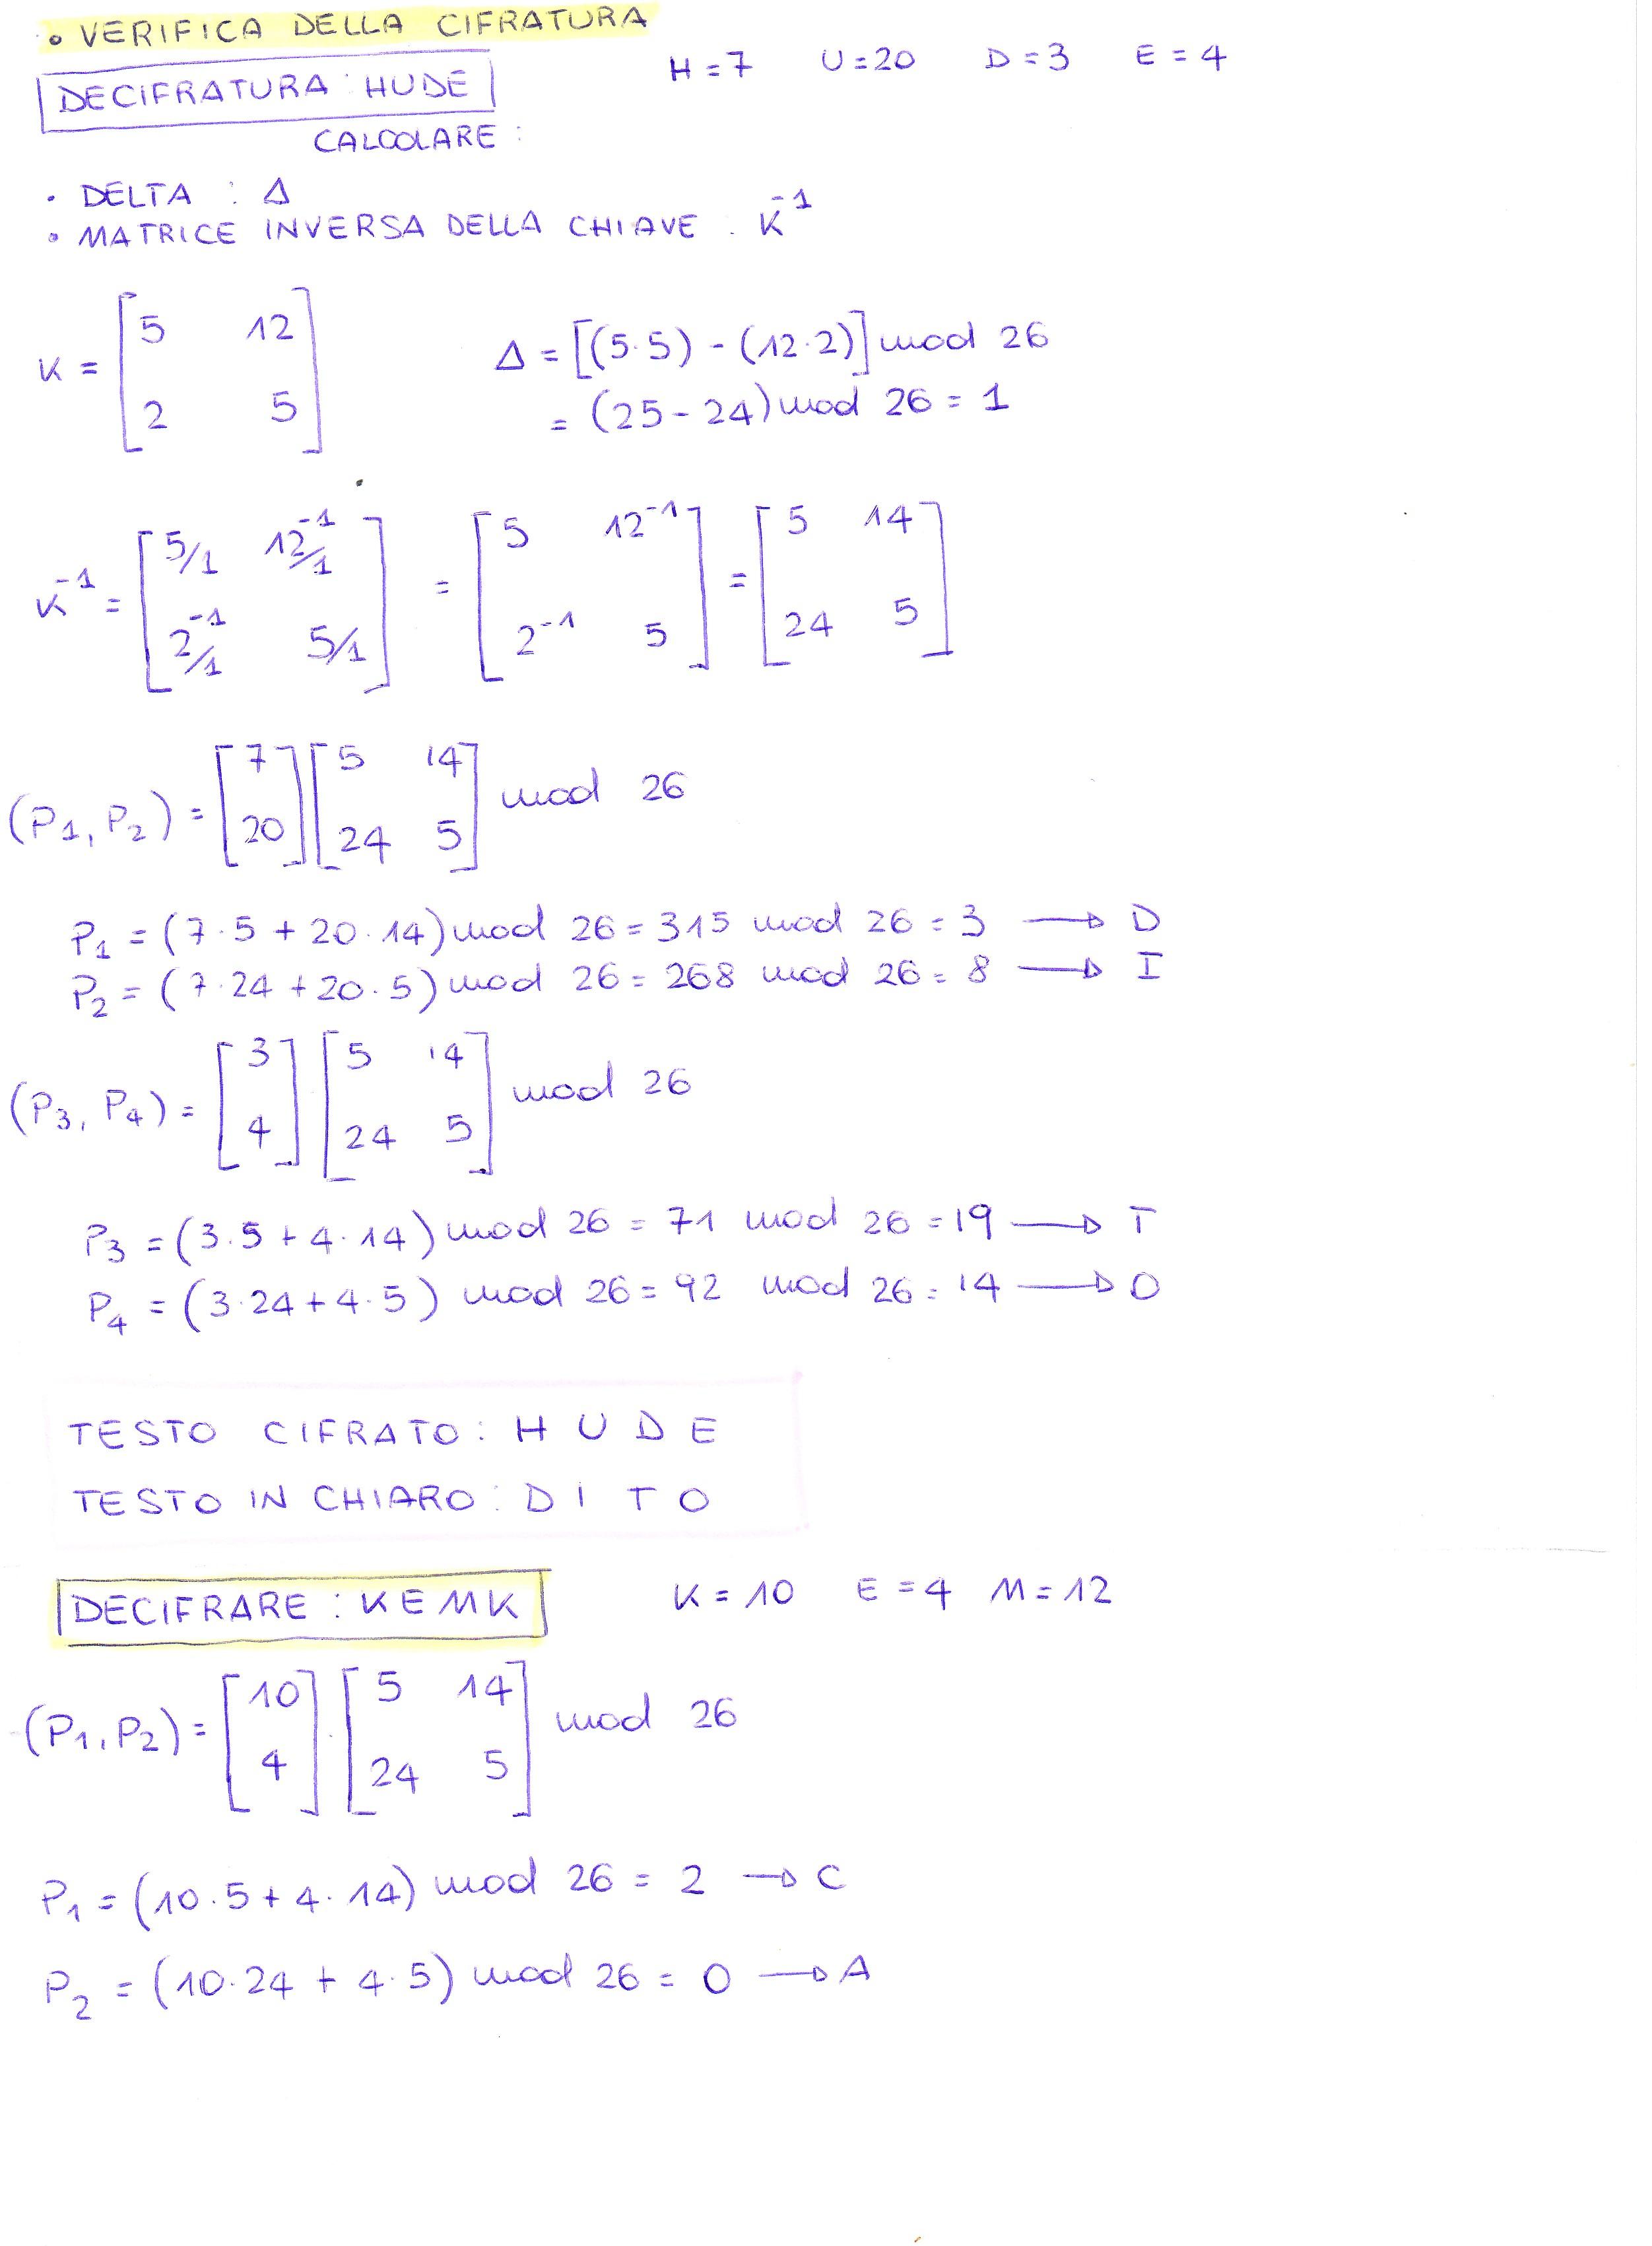 • VERIFICA DELLA CIFRATURA
DECIFRATURA : HUDE H = 7 U = 20 D = 3 E = 4
CALCOLARE :
• DELTA : Δ
• MATRICE INVERSA DELLA CHIAVE : K⁻¹
K = [5 12
2 5]
Δ = [(5·5) - (12·2)] mod 26
= (25 - 24) mod 26 = 1
K⁻¹ = [5/1 12⁻¹/1
2⁻¹/1 5/1]
= [5 12⁻¹
2⁻¹ 5]
= [5 14
24 5]
(P₁, P₂) = [7
20] [5 14
24 5] mod 26
P₁ = (7·5 + 20·14) mod 26 = 315 mod 26 = 3 → D
P₂ = (7·24 + 20·5) mod 26 = 268 mod 26 = 8 → I
(P₃, P₄) = [3
4] [5 14
24 5] mod 26
P₃ = (3·5 + 4·14) mod 26 = 71 mod 26 = 19 → T
P₄ = (3·24 + 4·5) mod 26 = 92 mod 26 = 14 → O
TESTO CIFRATO : H U D E
TESTO IN CHIARO : D I T O
DECIFRARE : KEMK K = 10 E = 4 M = 12
(P₁, P₂) = [10
4] · [5 14
24 5] mod 26
P₁ = (10·5 + 4·14) mod 26 = 2 → C
P₂ = (10·24 + 4·5) mod 26 = 0 → A